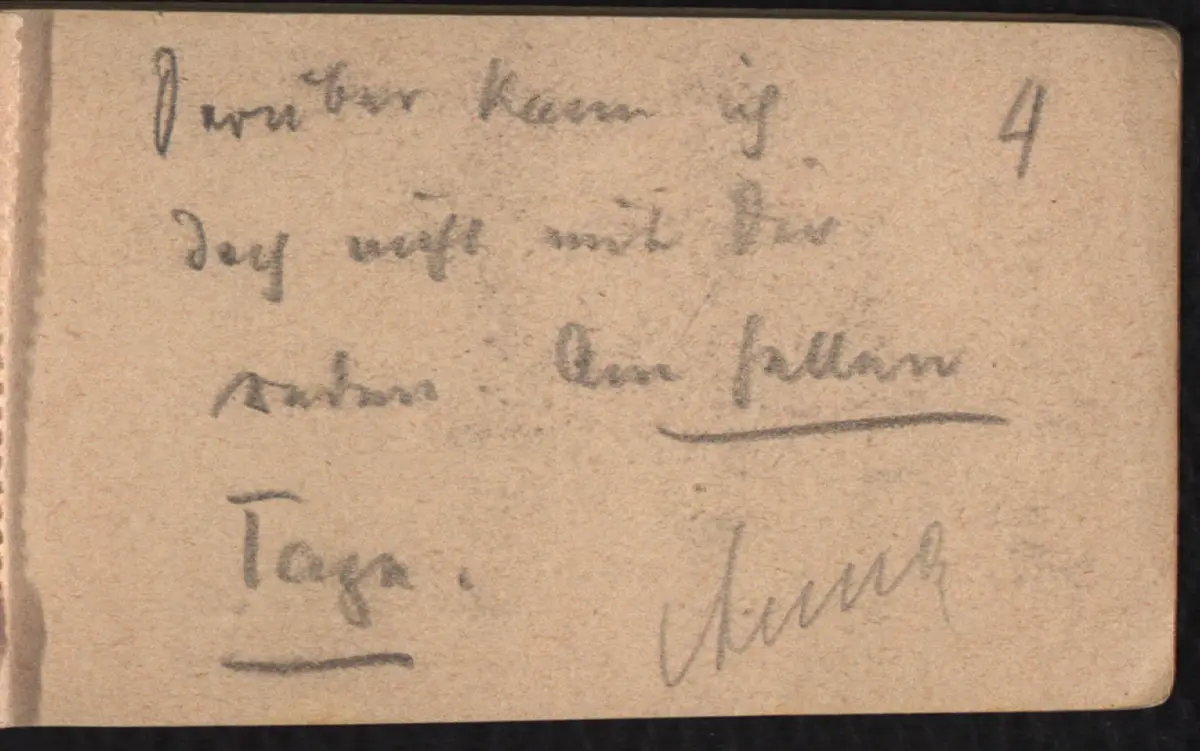 Darüber kann ich 4
doch nicht mit Dir
reden. Am hellen
Tage.
Anna